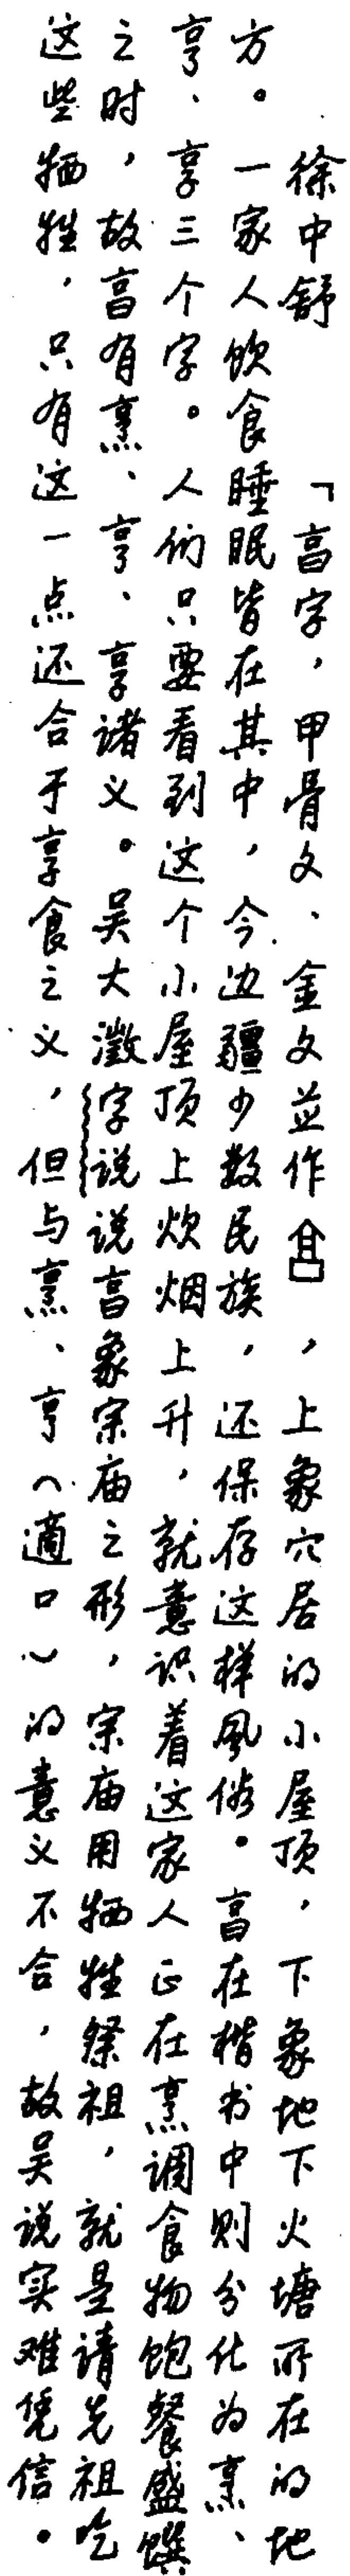 徐中舒 「亯字，甲骨文、金文並作，上象穴居的小屋顶，下象地下火塘所在的地
方。一家人饮食睡眠皆在其中，今边疆少数民族，还保存这样风俗。亯在楷书中则分化为烹、
亨、享三个字。人们只要看到这个小屋顶上炊烟上升，就意识着这家人正在烹调食物饱餐盛馔
之时，故亯有烹、亨、享诸义。吴大澂字说说亯象宗庙之形，宗庙用牺牲祭祖，就是请先祖吃
这些牺牲，只有这一点还合于享食之义，但与烹、亨（適口）的意义不合，故吴说实难凭信。